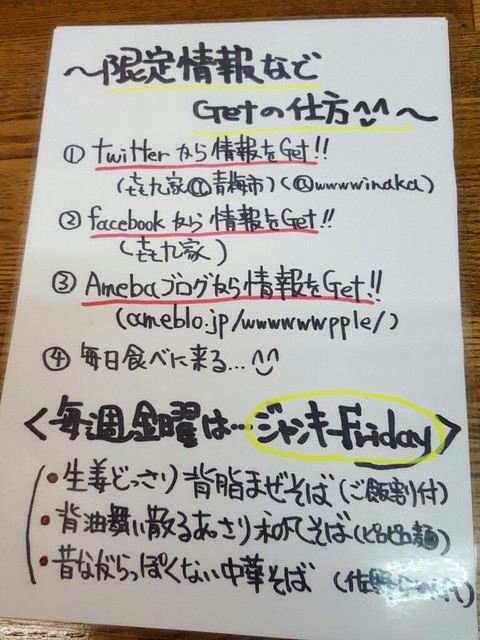 〜限定情報など
Getの仕方^^〜
① twitterから情報をGet!!
(㐂九家@青梅市)(@wwwwinaka)
② facebookから情報をGet!!
(㐂九家)
③ Amebaブログから情報をGet!!
(ameblo.jp/wwwwwwpple/)
④ 毎日食べに来る…^^
<毎週金曜は…ジャンキーFriday>
・生姜どっさり背脂まぜそば(ご飯割付)
・背油舞い散るあっさり和風そば(ピロピロ麺)
・昔ながらっぽくない中華そば (佐野